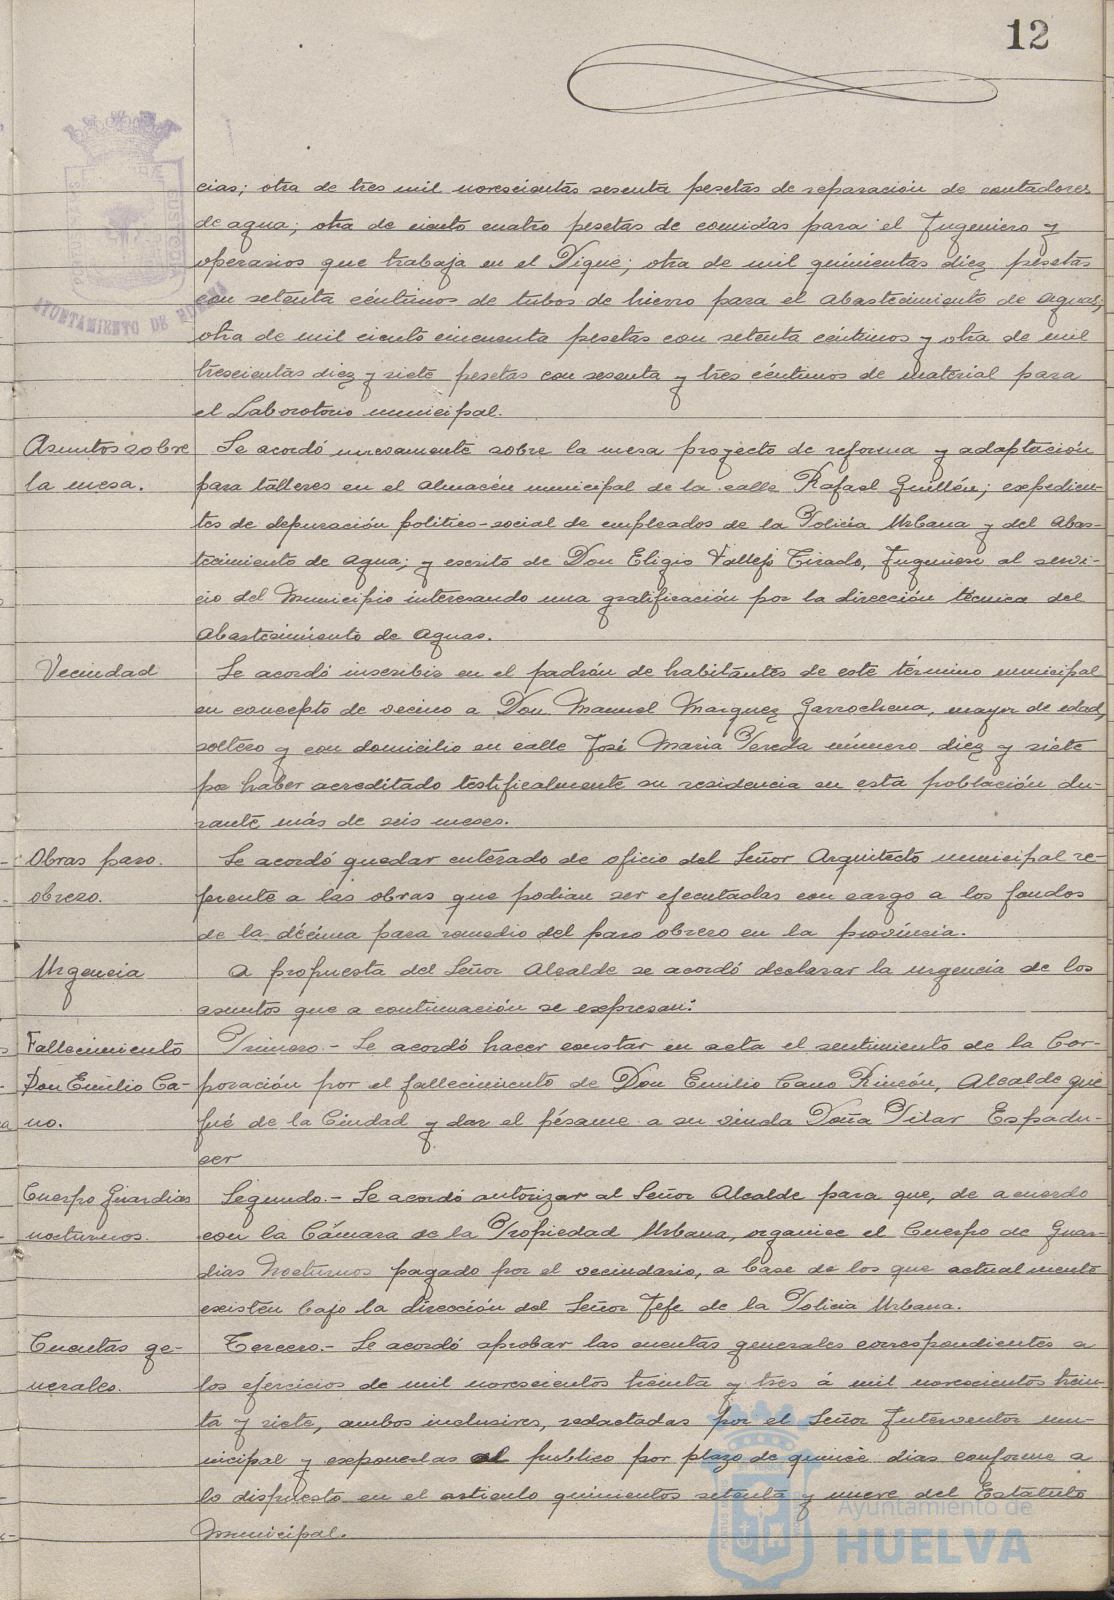 12
cias; otra de tres mil novescientas sesenta pesetas de reparación de contadores
de agua; otra de ciento cuatro pesetas de comidas para el Ingeniero y
operarios que trabaja en el Dique; otra de mil quinientas diez pesetas
con setenta céntimos de tubos de hierro para el abastecimiento de aguas;
otra de mil ciento cincuenta pesetas con setenta céntimos y otra de mil
trescientas diez y siete pesetas con sesenta y tres céntimos de material para
el Laboratorio municipal.
Asuntos sobre
la mesa.
Se acordó nuevamente sobre la mesa proyecto de reforma y adaptación
para talleres en el almacén municipal de la calle Rafael Guillén; expedien-
tes de depuración politico-social de empleados de la Policia Urbana y del abas-
tecimiento de agua; y escrito de Don Eligio Vallejo Tirado, Ingeniero al servi-
cio del Municipio interesando una gratificación por la dirección técnica del
abastecimiento de aguas.
Vecindad
Se acordó inscribir en el padrón de habitantes de este término municipal
en concepto de vecino a Don Manuel Marquez Garrochena, mayor de edad,
soltero y con domicilio en calle José Maria Pereda número diez y siete
por haber acreditado testificalmente su residencia en esta población du-
rante más de seis meses.
Obras paro.
obrero.
Se acordó quedar enterado de oficio del Señor Arquitecto municipal re-
ferente a las obras que podian ser ejecutadas con cargo a los fondos
de la décima para remedio del paro obrero en la provincia.
Urgencia
A propuesta del Señor Alcalde se acordó declarar la urgencia de los
asuntos que a continuación se expresan:
Fallecimiento
Don Emilio Ca-
no.
Primero.- Se acordó hacer constar en acta el sentimiento de la Cor-
poración por el fallecimiento de Don Emilio Cano Rincón, Alcalde que
fué de la Ciudad y dar el pésame a su viuda Doña Pilar Espadu-
cer
Cuerpo Guardias
nocturnos.
Segundo.- Se acordó autorizar al Señor Alcalde para que, de acuerdo
con la Cámara de la Propiedad Urbana, organice el Cuerpo de Guar-
dias Nocturnos pagado por el vecindario, a base de los que actualmente
existen bajo la dirección del Señor Jefe de la Policia Urbana.
Cuentas ge-
nerales.
Tercero.- Se acordó aprobar las cuentas generales correspondientes a
los ejercicios de mil novescientos treinta y tres á mil novescientos trein-
ta y siete, ambos inclusives, redactadas por el Señor Interventor mu-
nicipal y exponerlas al publico por plazo de quince dias conforme a
lo dispuesto en el articulo quinientos setenta y nueve del Estatuto
Municipal.
AYUNTAMIENTO DE HUELVA
Ayuntamiento de
HUELVA